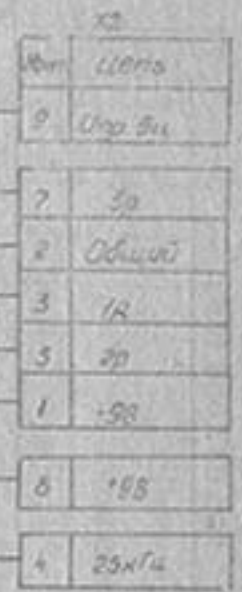 X2
Конт Цепь
9 Упр. 5и
7 3р
2 Общий
3 1р
5 2р
1 -9В
8 +9В
4 25кГц